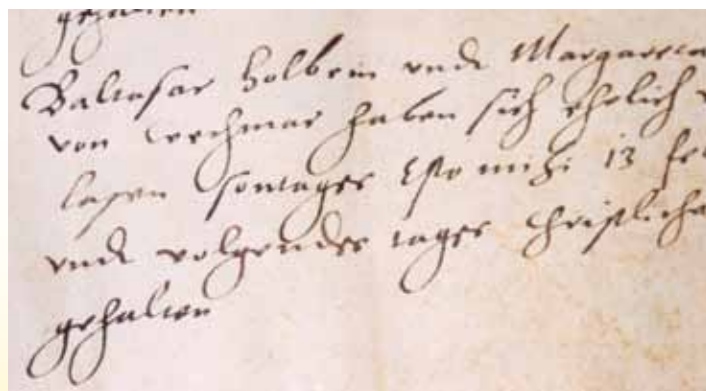 gehalten
Baltasar Holbein unde Margareta
von wechmar haben sich ehelich
lasen sontages Esto mihi 13 feb
unde volgendes tages christliche
gehalten